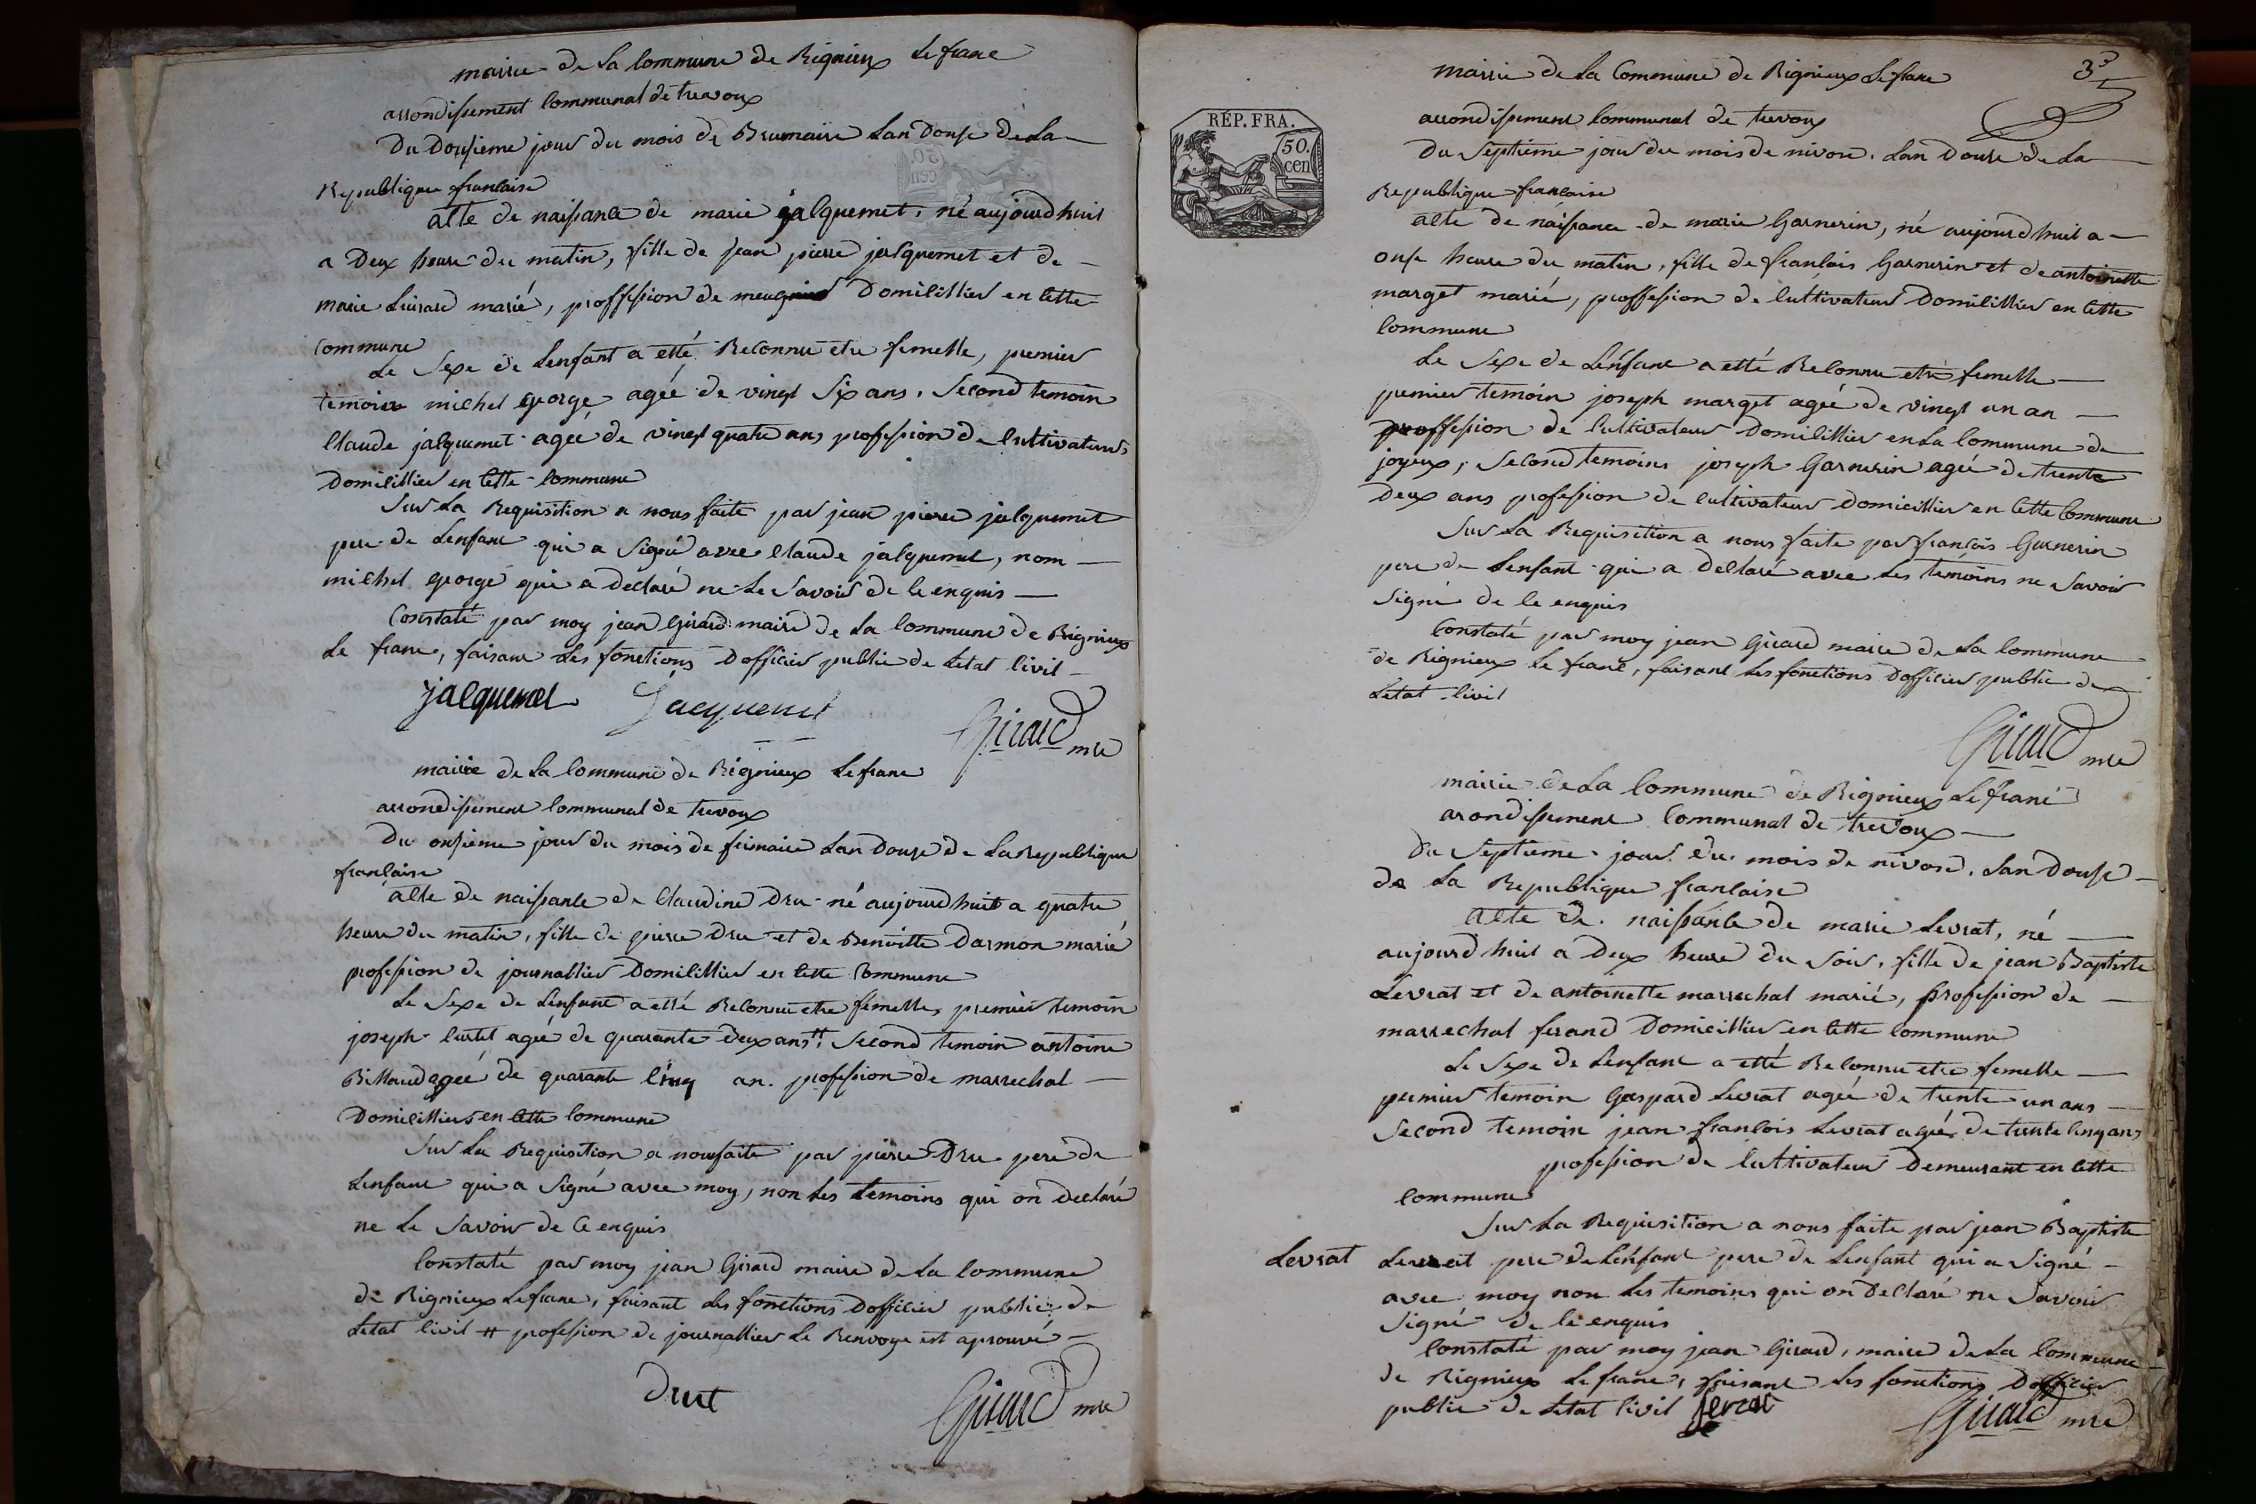 mairie de la Commune de Rignieux le franc
arrondissement Communal de trevoux
Du Douzieme jour du mois de Brumaire Lan Douse de La
Republique francaise
acte de naissance de marie jacquemet, né aujourdhuit
a Deux heure du matin, fille de jean pierre jacquemet et de
marie marié, proffession de meugnier Domicillier en cette
Commune
Le Sexe de Lenfant a etté Reconnu etre femelle, premier
temoin michel george agée de vingt Six ans, Second temoin
Claude jacquemet agée de vingt quatre ans profession de Cultivateurs
Domicillier en cette Commune
Sur La Requisition a nous faite par jean pierre jacquemet
pere de Lenfant qui a Signé avec Claude jacquemet, nom
michel george qui a declaré ne Le Savoir de ce enquis
Constaté par moy jean Girard maire de La Commune de Rignieux
Le franc, faisant Les fonctions Dofficier public de Letat Civil
jacquemet Jacquemet
Girard mre
mairie de La Commune de Rignieux Le franc
arrondissement Communal de trevoux
Du onsieme jour du mois de frimaire Lan Douze de La Republique
francaise
acte de naissance de Claudine Dru né aujourdhuit a quatre
heure du matin, fille de pierre Dru et de Benoitte Darmon marié
profession de journallier Domicillier en cette Commune
Le Sexe de Lenfant a etté Reconnu etre femelle, premier temoin
joseph Curtet agée de quarante deux ans # Second temoin antoine
Billaud agée de quarante Cinq an. profession de marrechal
Domicilliers en cette Commune
Sur La Requisition a nous faite par pierre Dru pere de
Lenfant qui a Signé avec moy, non Les temoins qui on declaré
ne Le Savoir de Ce enquis
Constaté par moy jean Girard maire de La Commune
de Rignieux Le franc, faisant Les fonctions Dofficier public de
Letat Civil # profession de journallier Le Renvoye est aprouvé
Drut
Girard mre
3
mairie de La Commune de Rignieux Le franc
RÉP. FRA.
50.
cen
arrondissement Communal de trevoux
Du Septieme jour du mois de nivose. Lan Douse de La
Republique francaise
acte de naissance de marie Garnerin, né aujourdhuit a
onse heure du matin, fille de francois Garnerin et de antoinette
marget marié, proffession de Cultivateur Domicillier en Cette
Commune
Le Sexe de Lenfant a etté Reconnu etre femelle
premier temoin joseph marget agée de vingt un an
proffession de Cultivateur Domicillier en La Commune de
joyeux, Second temoins joseph Garnerin agée de trente
Deux ans profession de Cultivateur Domicillier en Cette Commune
Sur La Requisition a nous faite par francois Garnerin
pere de Lenfant qui a declaré avec Les temoins ne Savoir
Signé de Ce enquis
Constaté par moy jean Girard maire de La Commune
de Rignieux Le franc, faisant Les fonctions Dofficier public de
Letat Civil
Girard mre
mairie de La Commune de Rignieux Le franc
arondissement Communal de trevoux
Du Septieme jour du mois de nivose. Lan Douse
de La Republique francaise
acte de naissance de marie Levrat, né
aujourdhuit a Deux heure du Soir, fille de jean Baptiste
Levrat et de antoinette marrechal marié, profession de
marrechal ferand Domicillier en Cette Commune
Le Sexe de Lenfant a etté Reconnu etre femelle
premier temoin Gaspard Levrat agée de trente un ans
Second temoin jean francois Levrat agée de trente Cinq ans
profession de Cultivateur Demeurant en Cette
Commune
Sur La Requisition a nous faite par jean Baptiste
Levrat Levrat pere de Lenfant pere de Lenfant qui a Signé
avec moy non Les temoins qui on declaré ne Savoir
Signé de Ce enquis
Constaté par moy jean Girard, maire de La Commune
de Rignieux Le franc, faisant Les fonctions Dofficier
public de Letat Civil Levrat
Girard mre